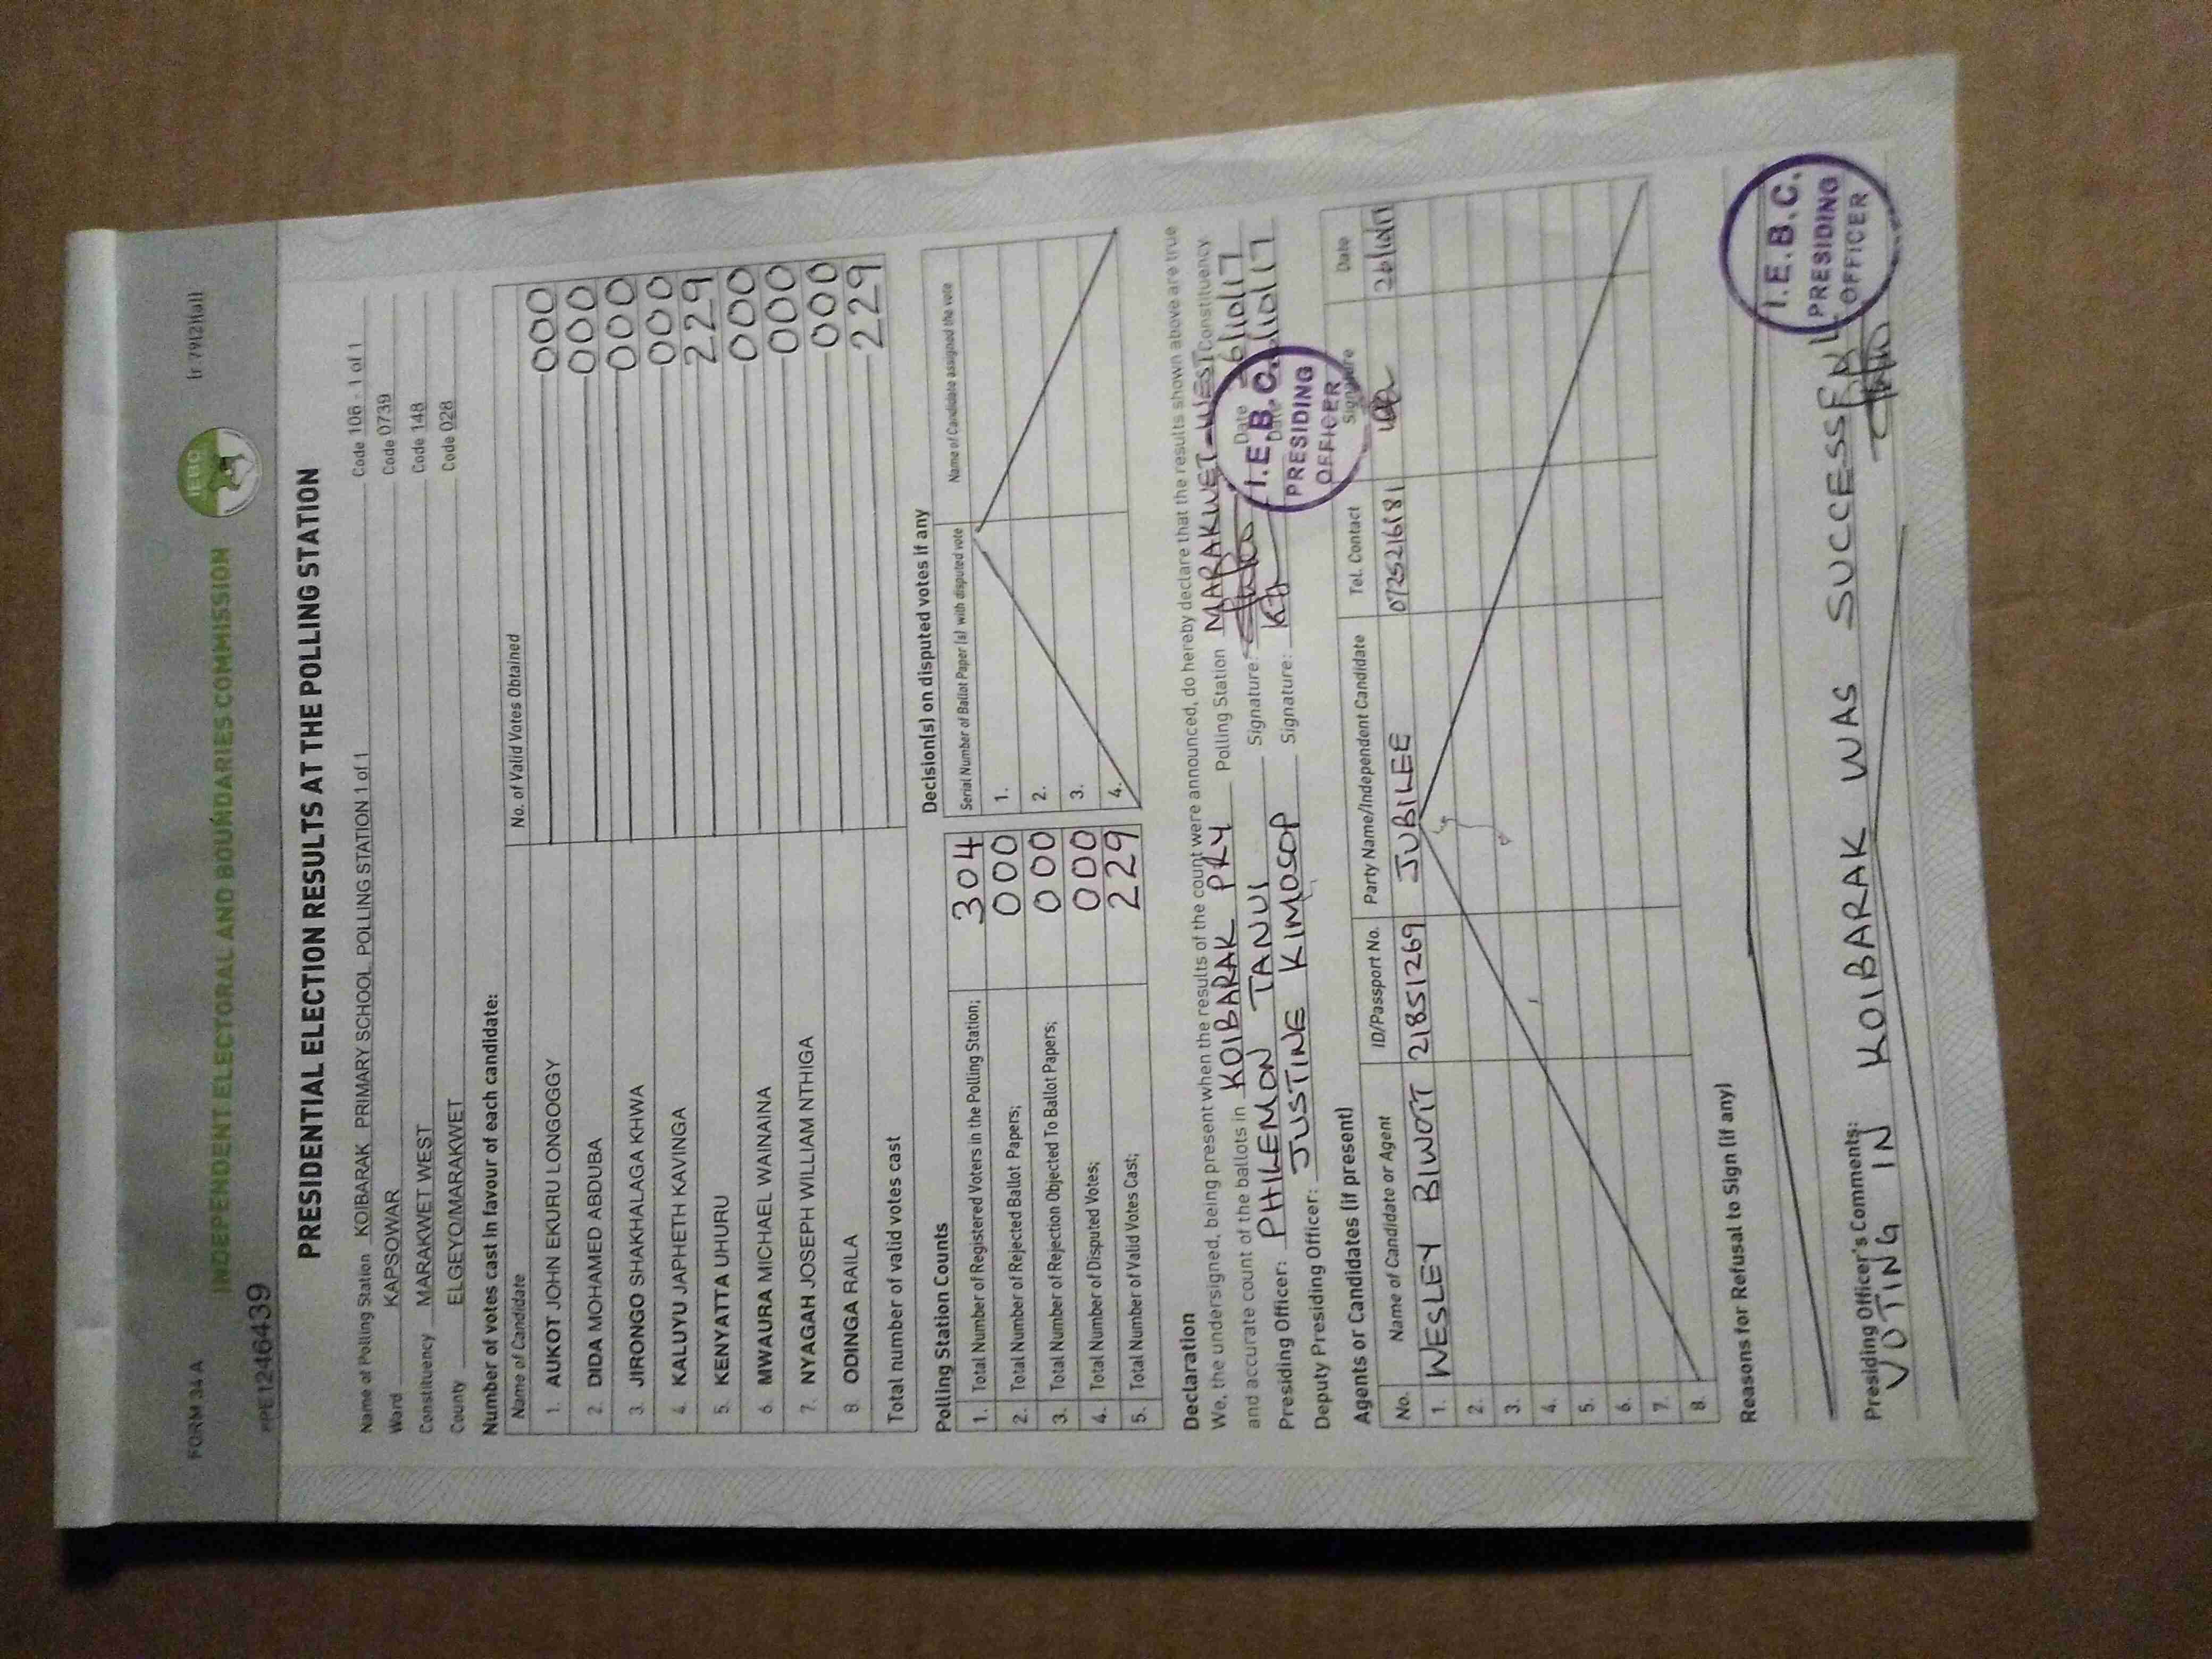 FORM 34 A
(r.79(2)(a))
IEBC
INDEPENDENT ELECTORAL AND BOUNDARIES COMMISSION
PRE1246439
PRESIDENTIAL ELECTION RESULTS AT THE POLLING STATION
Name of Polling Station KOIBARAK PRIMARY SCHOOL POLLING STATION 1 of 1 Code 106 - 1 of 1
Ward KAPSOWAR Code 0739
Constituency MARAKWET WEST Code 148
County ELGEYO/MARAKWET Code 028
Number of votes cast in favour of each candidate:
Name of Candidate No. of Valid Votes Obtained
1. AUKOT JOHN EKURU LONGOGGY 000
2. DIDA MOHAMED ABDUBA 000
3. JIRONGO SHAKHALAGA KHWA 000
4. KALUYU JAPHETH KAVINGA 000
5. KENYATTA UHURU 229
6. MWAURA MICHAEL WAINAINA 000
7. NYAGAH JOSEPH WILLIAM NTHIGA 000
8. ODINGA RAILA 000
Total number of valid votes cast 229
Polling Station Counts
1. Total Number of Registered Voters in the Polling Station; 304
2. Total Number of Rejected Ballot Papers; 000
3. Total Number of Rejection Objected To Ballot Papers; 000
4. Total Number of Disputed Votes; 000
5. Total Number of Valid Votes Cast; 229
Decision(s) on disputed votes if any
Serial Number of Ballot Paper (s) with disputed vote Name of Candidate assigned the vote
1.
2.
3.
4.
Declaration
We, the undersigned, being present when the results of the count were announced, do hereby declare that the results shown above are true
and accurate count of the ballots in KOIBARAK PRY Polling Station MARAKWET-WEST Constituency
Presiding Officer: PHILEMON TANUI Signature: Date 26/10/17
Deputy Presiding Officer: JUSTINE KIMOSOP Signature: Date 26/10/17
I.E.B.C.
PRESIDING
OFFICER
Agents or Candidates (if present)
No. Name of Candidate or Agent ID/Passport No. Party Name/Independent Candidate Tel. Contact Signature Date
1. WESLEY BIWOTT 21851269 JUBILEE 0725216181 26/10/17
2.
3.
4.
5.
6.
7.
8.
Reasons for Refusal to Sign (if any)
Presiding Officer's Comments:
VOTING IN KOIBARAK WAS SUCCESSFUL
I.E.B.C.
PRESIDING
OFFICER